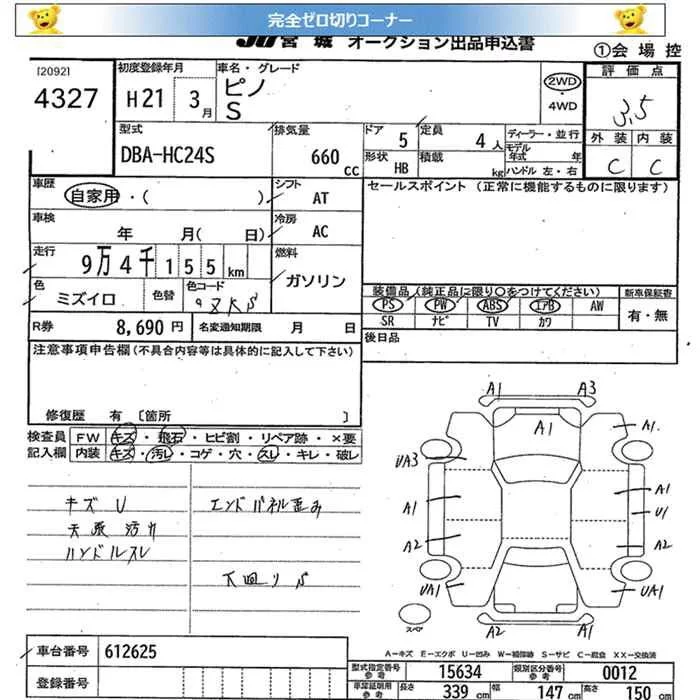 完全ゼロ切りコーナー
JU宮城 オークション出品申込書
①会場控
[2092]
4327
初度登録年月
H21 3月
車名・グレード
ピノ
S
2WD
・
4WD
評価点
3.5
外装 内装
C C
型式
DBA-HC24S
排気量
660 CC
ドア 5
定員 4人
形状 HB
積載 kg
ディーラー・並行
モデル年式 年
ハンドル 左・右
車歴
自家用・( )
シフト
AT
セールスポイント (正常に機能するものに限ります)
車検
年 月( 日)
冷房
AC
走行
9万4千155km
燃料
ガソリン
色
ミズイロ
色替
色コード
装備品 (純正品に限り○をつけてください)
PS PW ABS エアB AW
SR ナビ TV カワ
新車保証書
有・無
R券 8,690円
名変通知期限 月 日
後日品
注意事項申告欄(不具合内容等は具体的に記入して下さい)
修復歴 有 〔箇所 〕
検査員記入欄
FW キズ・飛石・ヒビ割・リペア跡・×要
内装 キズ・汚レ・コゲ・穴・スレ・キレ・破レ
キズ U
天張 汚れ
ハンドルスレ
エンドパネル歪み
下回り S
A1 A3
A1 A1
UA3
A1 A1
U1
A2 A2
UA1 UA1
スペア
A2 A1
A-キズ E-エクボ U-凹み W-補修跡 S-サビ C-腐食 XX-交換済
車台番号 612625
登録番号
型式指定番号参考 15634
類別区分番号参考 0012
車庫証明用参考 長さ 339cm 幅 147cm 高さ 150cm